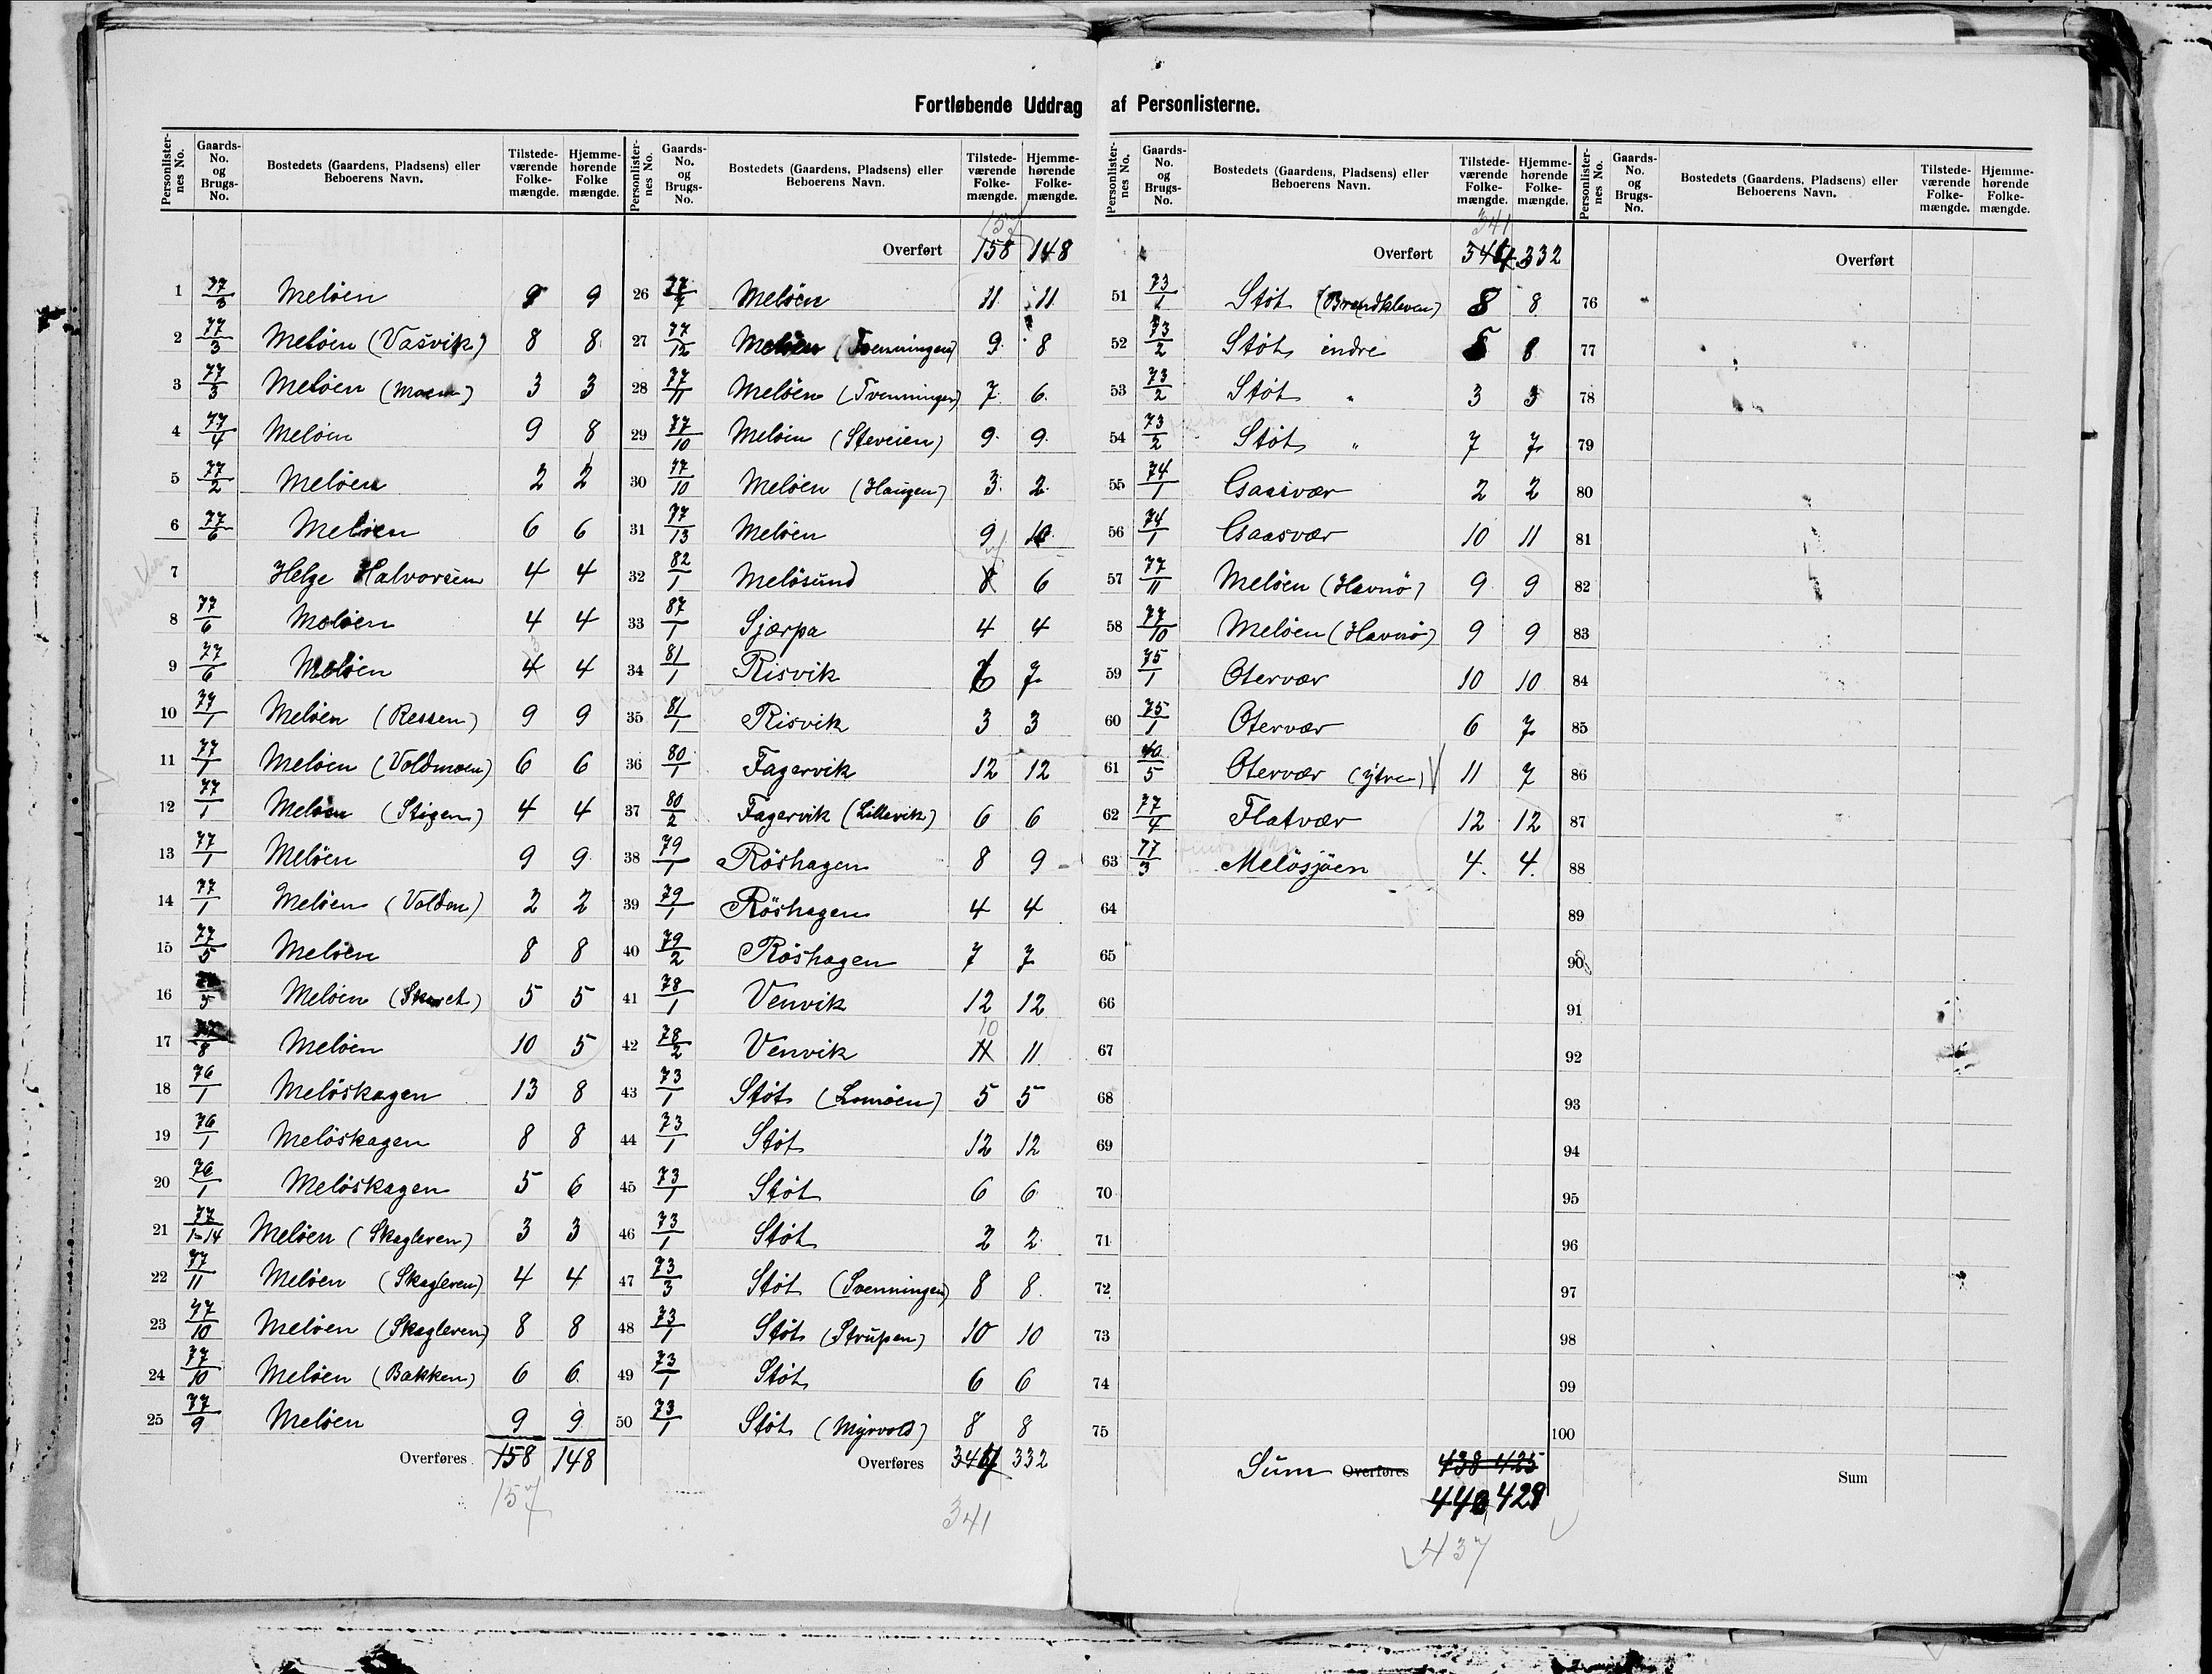 Fortløbende Uddrag af Personlisterne.
Personlister-nes No. Gaards-No. og Brugs-No. Bostedets (Gaardens, Pladsens) eller Beboerens Navn. Tilstede-værende Folke-mængde. Hjemme-hørende Folke mængde.
1 77/3 Meløen 9 9
2 77/3 Meløen (Vasvik) 8 8
3 77/3 Meløen (Moen) 3 3
4 77/4 Meløen 9 8
5 77/2 Meløen 2 2
6 77/6 Meløen 6 6
7 Helge Halvorsen 4 4
8 77/6 Meløen 4 4
9 77/6 Meløen 4 4
10 77/1 Meløen (Ressen) 9 9
11 77/1 Meløen (Voldmoen) 6 6
12 77/1 Meløen (Stigen) 4 4
13 77/1 Meløen 9 9
14 77/1 Meløen (Volden) 2 2
15 77/5 Meløen 8 8
16 Meløen 5 5
17 77/8 Meløen 10 5
18 76/1 Meløskagen 13 8
19 76/1 Meløskagen 8 8
20 76/1 Meløskagen 5 6
21 77/1-14 Meløen (Skagleren) 3 3
22 77/11 Meløen (Skagleren) 4 4
23 77/10 Meløen (Skagleren) 8 8
24 77/10 Meløen (Bakken) 6 6
25 77/9 Meløen 9 9
Overføres 158 148
157
Personlister-nes No. Gaards-No. og Brugs-No. Bostedets (Gaardens, Pladsens) eller Beboerens Navn. Tilstede-værende Folke-mængde. Hjemme-hørende Folke-mængde.
157
Overført 158 148
26 77/7 Meløen 11 11
27 77/12 Meløen (Tvenningen) 9 8
28 77/11 Meløen (Tvenningen) 7 6
29 77/10 Meløen (Steveien) 9 9
30 77/10 Meløen (Haugen) 3 2
31 77/13 Meløen 9 10
32 82/1 Meløsund 8 6
33 87/1 Sjærpa 4 4
34 81/1 Risvik 6 7
35 81/1 Risvik 3 3
36 80/1 Fagervik 12 12
37 80/2 Fagervik (Lillevik) 6 6
38 79/1 Røshagen 8 9
39 79/1 Røshagen 4 4
40 79/2 Røshagen 7 7
41 78/1 Venvik 12 12
10
42 78/2 Venvik 11 11
43 73/1 Støt (Lomøen) 5 5
44 73/1 Støt 12 12
45 73/1 Støt 6 6
46 73/1 Støt 2 2
47 73/3 Støt (Svenningen) 8 8
48 73/1 Støt (Strupen) 10 10
49 73/1 Støt 6 6
50 73/1 Støt (Myrvold) 8 8
Overføres 344 332
341
Personlister-nes No. Gaards-No. og Brugs-No. Bostedets (Gaardens, Pladsens) eller Beboerens Navn. Tilstede-værende Folke-mængde. Hjemme-hørende Folke-mængde.
341
Overført 344 332
51 73/1 Støt (Brendkleven) 8 8
52 73/2 Støt indre 8 8
53 73/2 Støt " 3 3
54 73/2 Støt " 7 7
55 74/1 Gaasvær 2 2
56 74/1 Gaasvær 10 11
57 77/11 Meløen (Havnø) 9 9
58 77/10 Meløen (Havnø) 9 9
59 75/1 Otervær 10 10
60 75/1 Otervær 6 7
61 40/5 Otervær (ytre) 11 7
62 77/4 Flatvær 12 12
63 77/3 Meløsjøen 4 4
64
65
66
67
68
69
70
71
72
73
74
75
Sum Overføres 438 425
442 429
437
Personlister-nes No. Gaards-No. og Brugs-No. Bostedets (Gaardens, Pladsens) eller Beboerens Navn. Tilstede-værende Folke-mængde. Hjemme-hørende Folke-mængde.
Overført
76
77
78
79
80
81
82
83
84
85
86
87
88
89
90
91
92
93
94
95
96
97
98
99
100
Sum